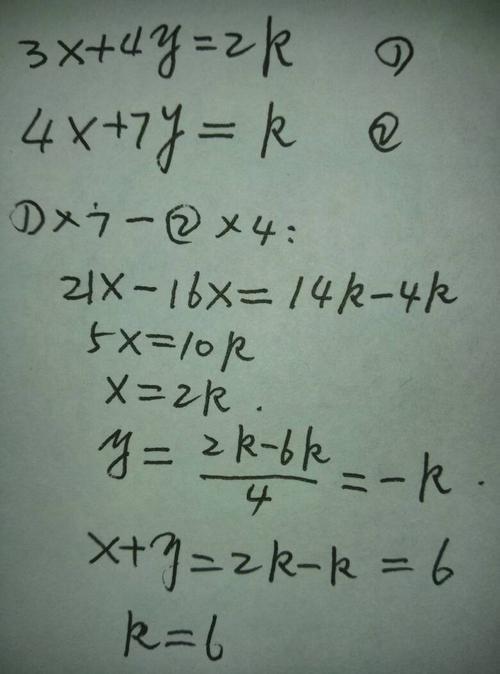 3x+4y=2k ①
4x+7y=k ②
①×7-②×4:
21x-16x=14k-4k
5x=10k
x=2k.
y=(2k-6k)/4=-k.
x+y=2k-k=6
k=6